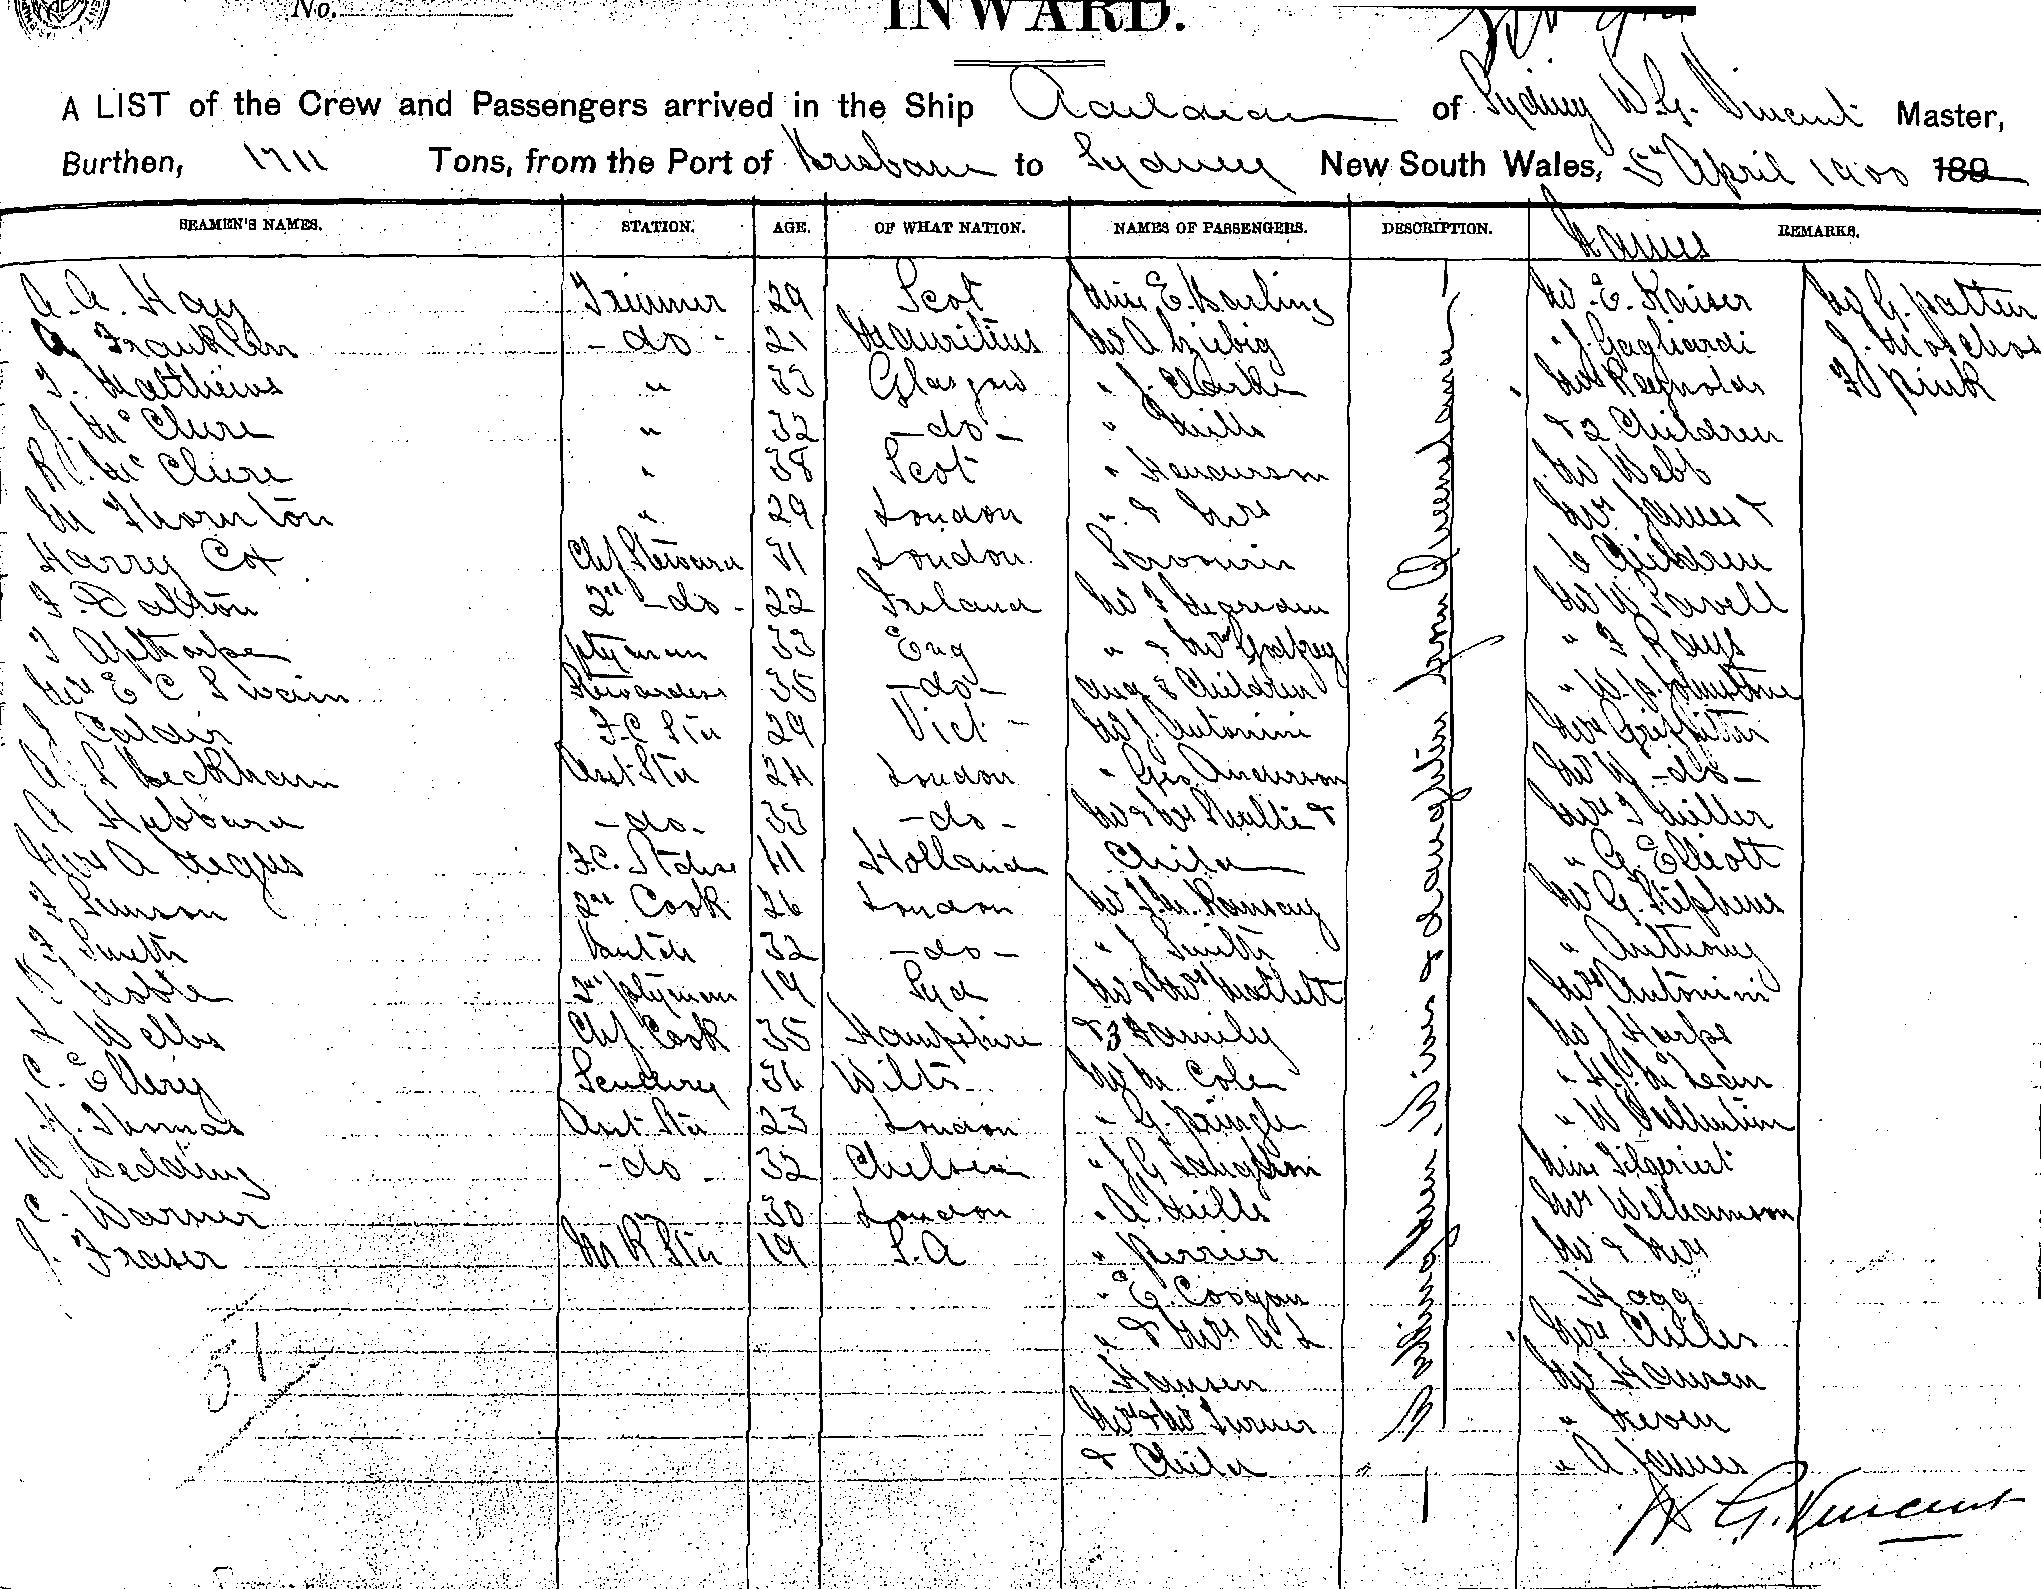 No.
INWARD.
A LIST of the Crew and Passengers arrived in the Ship of Sydney W. G. Vincent Master,
Burthen, 1711 Tons, from the Port of Brisbane to Sydney New South Wales, 5th April 1900 189
SEAMEN'S NAMES. STATION. AGE. OF WHAT NATION. NAMES OF PASSENGERS. DESCRIPTION. Names REMARKS.
A. A. Hay Trimmer 29 Scot Miss E. Barling Mr. E. Kaiser Mr G. Patten
A Franklin - do - 21 Mauritius Mr A Liebig " J. Gagliardi J. Moschos
T. Matthews " 33 Glasgow " J. Clarke Mrs Reynolds F Pink
J. McClure " 32 - do - " Mills & 2 Children
R. McClure " 38 Scot " Henderson Mr Webb
M Thornton " 29 London " & Mrs Mrs James &
Harry Cox Chf Steward 31 London 6 Children
F. Dalton 2nd - do - 22 Ireland Mr F Mr W Savell
T Apthorpe Ptryman 33 Eng " & Mrs Godfrey " F Rays
Mrs E C Swain Stewardess 35 - do - and 3 Children " W. H. Johnstone
Calder F.C. Std 29 Vict - Mr J. Antonini Mrs Griffiths
A S Beckham Asst Std 24 London " Geo Anderson Mr W - do -
A Hubbard - do - 33 - do - Mr & Mrs & Mrs T Miller
Mrs A Negus F.C. Stdss 41 Holland Child " G. Elliott
F 2nd Cook 26 London Mr J. M. Ramsay Mr G. Stephens
F Smith 32 - do - " J Smith " Anthony
Noble 3rd Ptryman 19 Syd Mr & Mrs Mallett Mrs Antonini
Wells Chf. Cook 35 Hampshire & 3 Family Mr J Harpe
C. Ellery Scullery 36 Wilts Mr M Cole
H. Thomas Asst Std 23 London " G. Pringle " W Vallentin
W Bedding - do - 32 Chelsea " J. G. Miss
C. Warner 30 London " A. Mills Mr Williamson
J. Fraser M R Std 19 S. A " Perrier Mr & Mrs
" E. Coogan Hogg
" & Mrs A L Mrs
Hansen Mr Hansen
Mrs & Mr Turner "
& Child " A. James
51
W G. Vincent